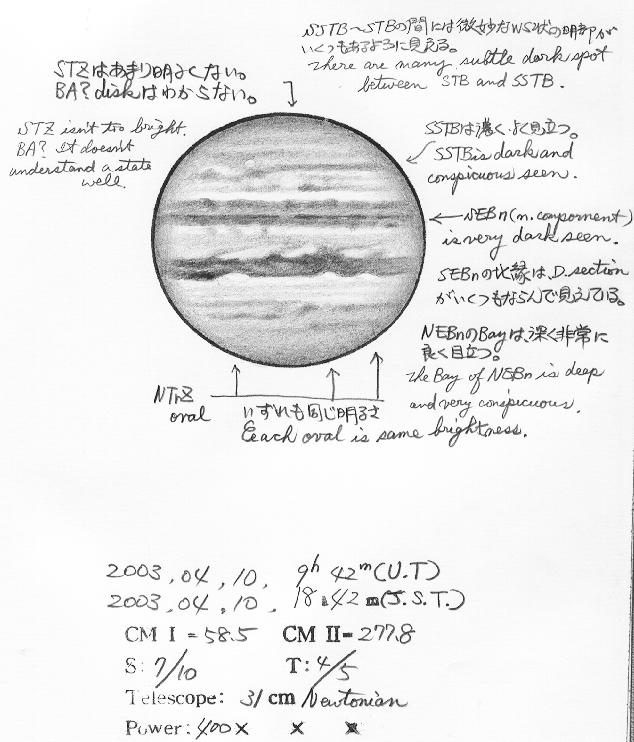 SSTB～STBの間には微妙なWS状の明部が
いくつもあるように見える。
there are many subtle dark spot
between STB and SSTB.
STZはあまり明るくない。
BA? diskはわからない。
STZ isn't too bright.
BA? It doesn't
understand a state
well.
SSTBは濃く、よく見立つ。
SSTB is dark and
conspicuous seen.
←NEBn(n.compornment)
is very dark seen.
SEBnの北縁は、D.section
がいくつもならんで見えている。
NEBnのBayは、深く非常に
良く目立つ。
the Bay of NEBn is deep
and very conspicuous.
NTrZ
oval
いずれも同じ明るさ
Each oval is same brightness.
2003,04,10, 9h 42m(U.T)
2003,04,10, 18 42 m(J.S.T.)
CM I = 58.5 CM II= 277.8
S: 7/10 T: 4/5
Telescope: 31 cm Newtonian
Power: 400× × ×